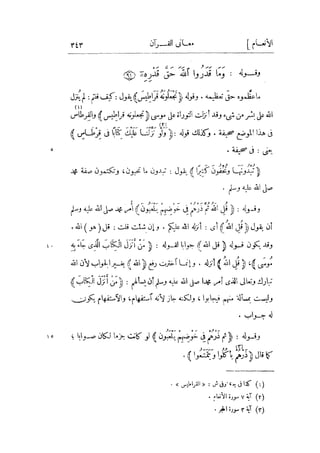 الأنعام ] معانى القــرآن ٣٤٣
وقــوله : ﴿ وَمَا قَدَرُوا اللَّهَ حَقَّ قَدْرِهِ ﴾ (٩١)
ما عظّموه حقّ تعظيمه . وقوله ﴿ تَجْعَلُونَهُ قَرَاطِيسَ ﴾ يقول : كيف قلتم : لم يُنزِل
الله على بشر من شىء وقد أنزلت التوراة على موسى ﴿ تجعلونه قراطيس ﴾ (١) والقرطاس
فى هذا الموضع صحيفة . وكذلك قوله : ﴿ وَلَوْ نَزَّلْنَا عَلَيْكَ كِتَابًا فِى قِرْطَاسٍ ﴾ (٢)
يعنى : فى صحيفة . ٥
﴿ تُبْدُونَهَا وَتُخْفُونَ كَثِيرًا ﴾ يقول : تبدون ما تحبون، وتكتمون صفة محمد
صلى الله عليه وسلم .
وقــوله : ﴿ قُلِ اللَّهُ ثُمَّ ذَرْهُمْ فِى خَوْضِهِمْ يَلْعَبُونَ ﴾ أمر محمد صلى الله عليه وسلم
أن يقول ﴿ قُلِ اللَّهُ ﴾ أى : أنزله الله عليكم . وإن شئت قلت : قل ( هو ) الله .
وقد يكون قــوله ﴿ قل الله ﴾ جوابا لقــوله : ﴿ مَنْ أَنْزَلَ الْكِتَابَ الَّذِى جَاءَ بِهِ ١٠
مُوسَى ﴾، ﴿ قُلِ اللَّهُ ﴾ أنزله . وإنمــا اخترت رفع ﴿ الله ﴾ بغــير الجواب لأن الله
تبارك وتعالى الذى أمر محمدا صلى الله عليه وسلم أن يسألهم : ﴿ مَنْ أَنْزَلَ الْكِتَابَ ﴾
وليست بمسألة منهم فيجابوا ، ولكنه جاز لأنه استفهام ، والاستفهام يكون
له جــواب .
وقــوله : ﴿ ثم ذرهم فى خوضهم يلعبون ﴾ لو كانت جزما لكان صــوابا ؛ ١٥
كما قال ﴿ ذَرْهُمْ يَأْكُلُوا وَيَتَمَتَّعُوا ﴾ (٣) .
(١) كذا فى ج . وفى ش : « القراطيس » .
(٢) آية ٧ سورة الأنعام .
(٣) آية ٣ سورة الحجر .